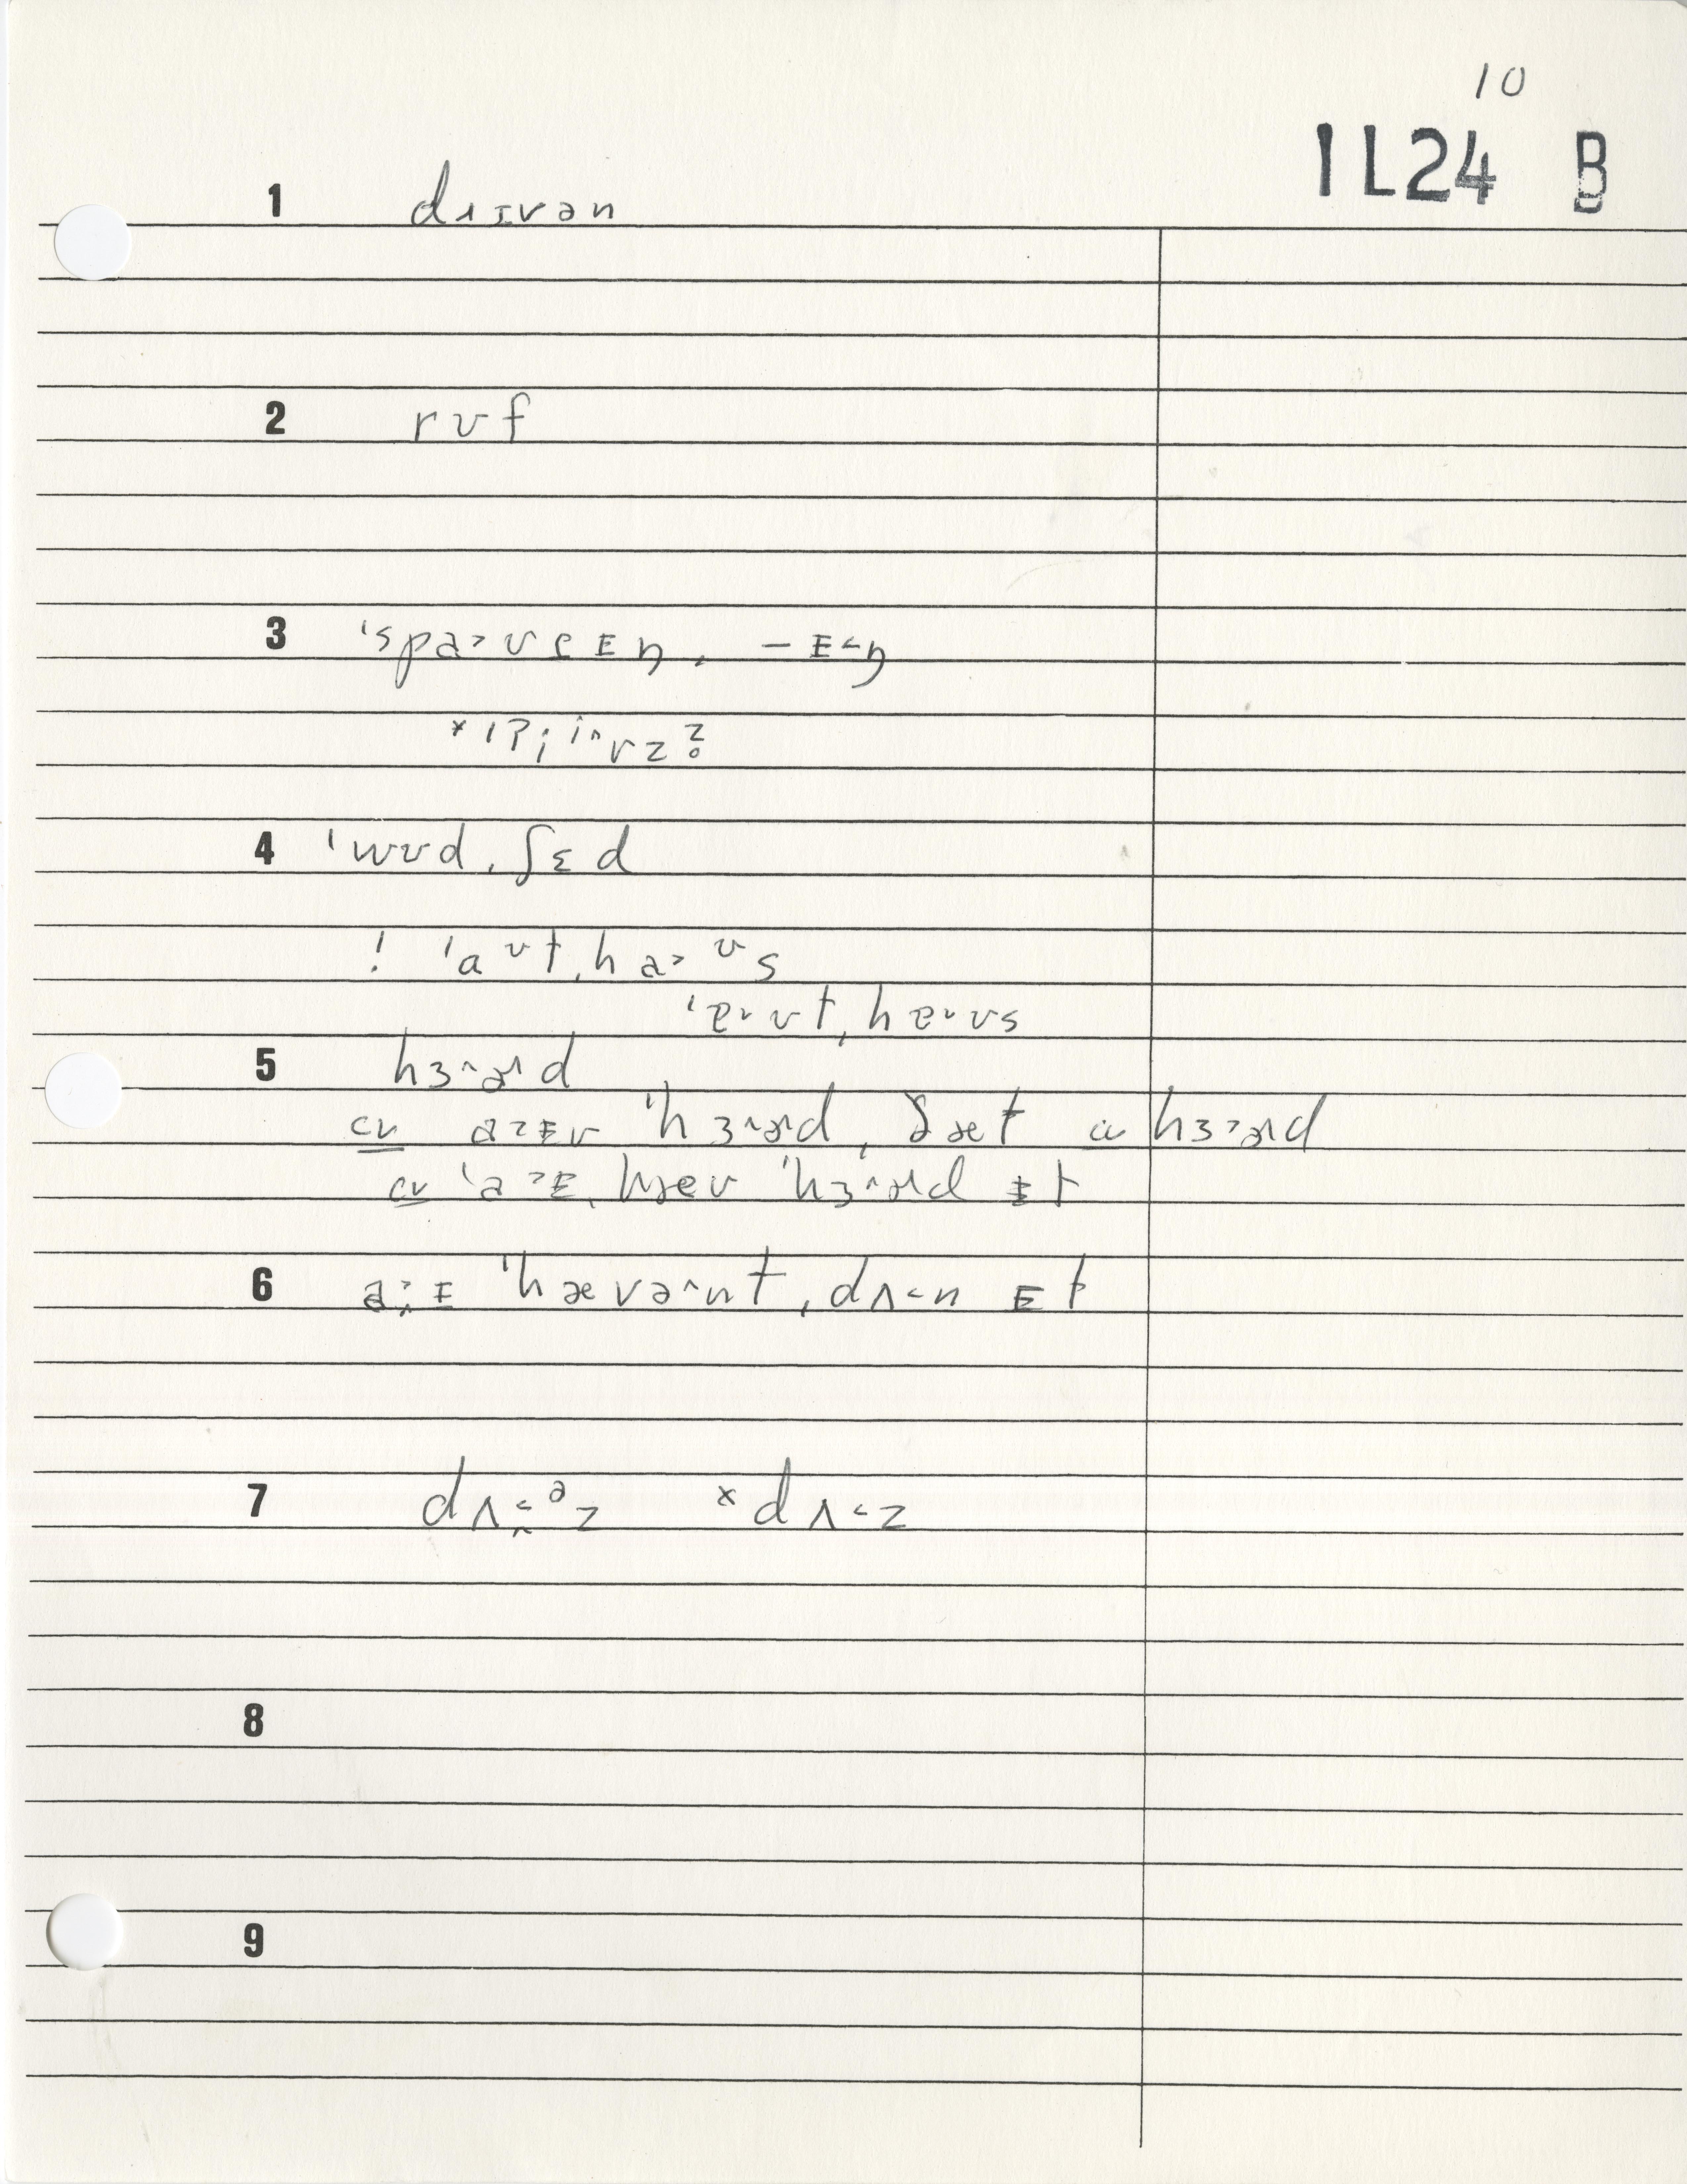 10
1L24 B
1 dɹɪvən
2 rʊf
3 ˈspa˃ʊtɪŋ, – ɪ˂ŋ
4 ˈwʊd, ʃɛd
! ˈaʊt, ha˃ʊs
ˈɐ˅ʊt, hɐ˅ʊs
5 hɜ˄ɚd
cv a˃ɪv ˈhɜ˄ɚd, ðæt cv hɜ˃ɚd
cv ˈa˃ɪ, hæv ˈhɜ˄ɚd ɪt
6 a˃ɪ ˈhævə˄nt, dʌ˂n ɪt
7 dʌ˂ᵊz ˣdʌ˂z
8
9